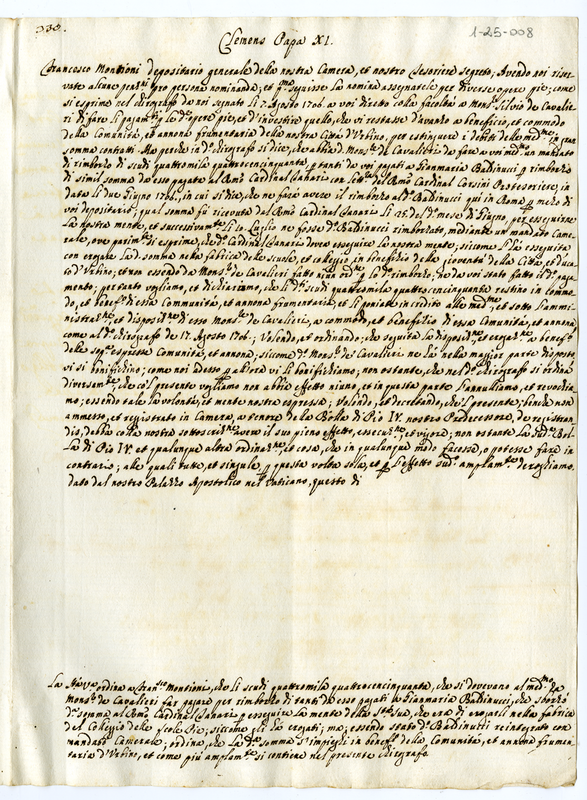 330.
1-25-008
Clemens Papa XI.
Francesco Montioni depositario generale della nostra Camera, et nostro Tesoriere segreto; Avendo noi riser-
vate alcune pens.ni pro persona nominanda; et p. seguisse la nomina assegnatele per diverse opere pie; come
si esprime nel chirografo da noi segnato li 7. Agosto 1706. a voi diretto colla facoltà a Mons.r Silvio de Cavalie-
ri di fare li pagam.ti p. le d.e opere pie, et d'investire quello, che vi restasse d'avanzo a beneficio, et commodo
della Comunità, et annona frumentaria della nostra Città d'Urbino, per estinguere i debiti delle med.me, in gran
somma contratti. Ma perche in d.o chirografo si dice, che abbia Mons.re de Cavalieri da fare a voi med.mo un mandato
di rimborso di scudi quattromila quattrocencinquanta, p. tanti da voi pagati a Gianmaria Baldinucci p. rimborso
di simil somma da esso pagata al Emo Cardinal Tanari con lett.a al Emo Cardinal Corsini Protesoriere, in
data li due Giugno 1706., in cui si dice, che ne farà avere il rimborso al d.o Baldinucci qui in Roma p. mezo di
voi depositario, qual somma fù ricevuta dal Emo Cardinal Tanari li 25. del d.o mese di Giugno, per eseguirne
la nostra mente, et successivam.te li 10. Luglio ne fosse d.o Baldinucci rimborsato, mediante un mandato Came-
rale, ove parim.te si esprime, che d.o Cardinal Tanari dovea eseguire la nostra mente; siccome l'hà eseguita
con erogare la d.a somma nella fabrica delle scuole, et collegio, in beneficio della gioventù della Città, et duca-
to d'Urbino; et non essendo da Mons.re de Cavalieri fatto niun ord.e p. lo d.o rimborso, ne da voi stato fatto il d.o paga-
mento; per tanto vogliamo, et dichiariamo, che li d.i scudi quattromila quattrocencinquanta restino in commo-
do, et benef.o di essa Comunità, et annona frumentaria, et li poniate in credito alle med.me, et sotto l'ammi-
nistraz.ne, et disposiz.ne di esso Mons.re de Cavalieri, a commodo, et benefitio di essa Comunità, et annona
come al d.o chirografo de 17. Agosto 1706.; Volendo, et ordinando, che seguita la disposiz.ne, et erogaz.ne a benef.o
delle sop.a espresse Comunità, et annona, siccome d.o Mons.re de Cavalieri ne hà nella maggior parte disposto
vi si bonifichino; come noi adesso p. allora vi li bonifichiamo; non ostante, che nel d.o chirografo si ordina
diversam.te, che col presente vogliamo non abbia effetto niuno, et in questa parte l'annulliamo, et revochia-
mo; essendo tale la volontà, et mente nostra espressa; Volendo, et decretando, che il presente, benche non
ammesso, et registrato in Camera, a tenore della Bolla di Pio IV. nostro Predecessore, de registran-
dis, debba colla nostra sottoscriz.ne avere il suo pieno effetto, essecuz.ne, et vigore; non ostante la sud.a Bol-
la di Pio IV. et qualunque altra ordinaz.ne, et cosa, che in qualunque modo facesse, o potesse fare in
contrario; alle quali tutte, et singule, p. questa volta sola, et p. l'effetto sud.o amplam.te deroghiamo.
dato dal nostro Palazzo Apostolico nel Vaticano, questo di
La S.tà V.ra ordina a Fran.sco Montioni, che li scudi quattromila quattrocencinquanta, che si dovevano al med.mo da
Mons.re de Cavalieri far pagare per rimborso di tanti da esso pagati a Gianmaria Baldinucci, che sborzò
d.a somma al Emo Cardinal Tanari p. eseguire la mente della S.tà sua, che era di erogarli nella fabrica
del Collegio delle scole Pie; siccome gli hà erogati; ma, essendo stato d.o Baldinucci reintegrato con
mandato Camerale; ordina, che la d.a somma s'impieghi in benef.o della Comunità, et annona frumen-
taria d'Urbino, et come più amplam.te si contiene nel presente chirografo.